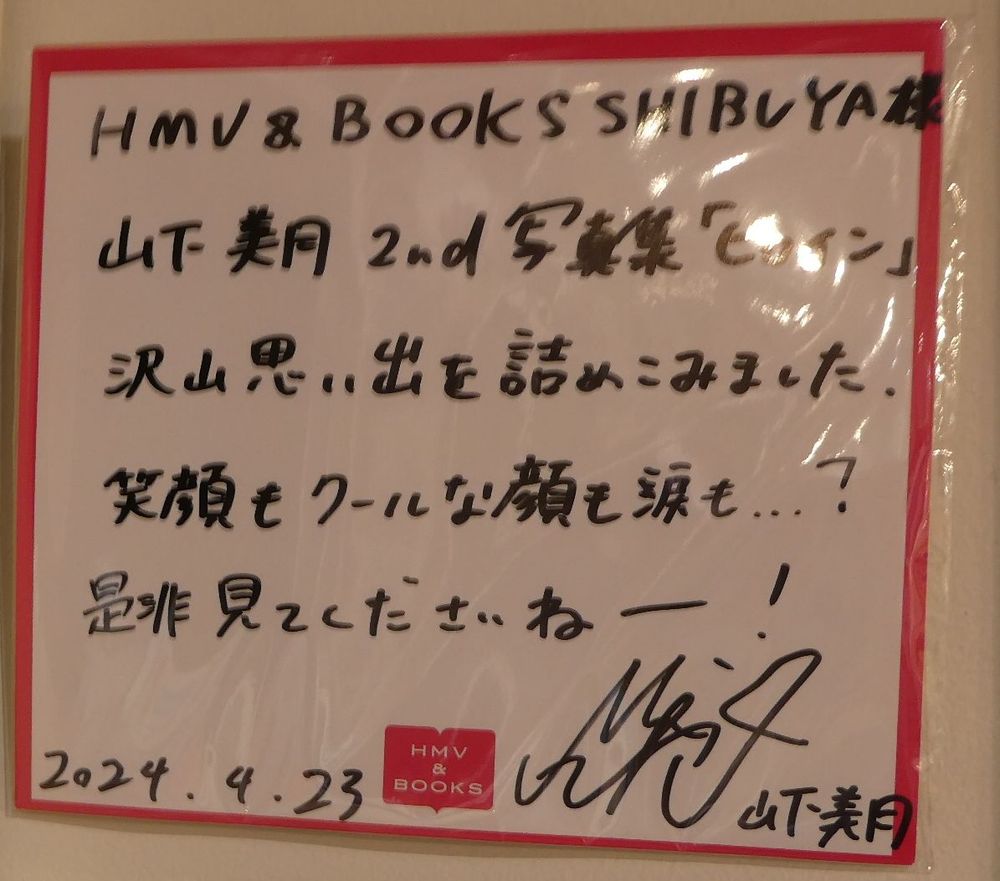 HMV & BOOKS SHIBUYA様
山下美月 2nd 写真集「ヒロイン」
沢山思い出を詰めこみました.
笑顔もクールな顔も涙も...?
是非見てくださいねー!
2024.4.23
HMV
&
BOOKS
山下美月